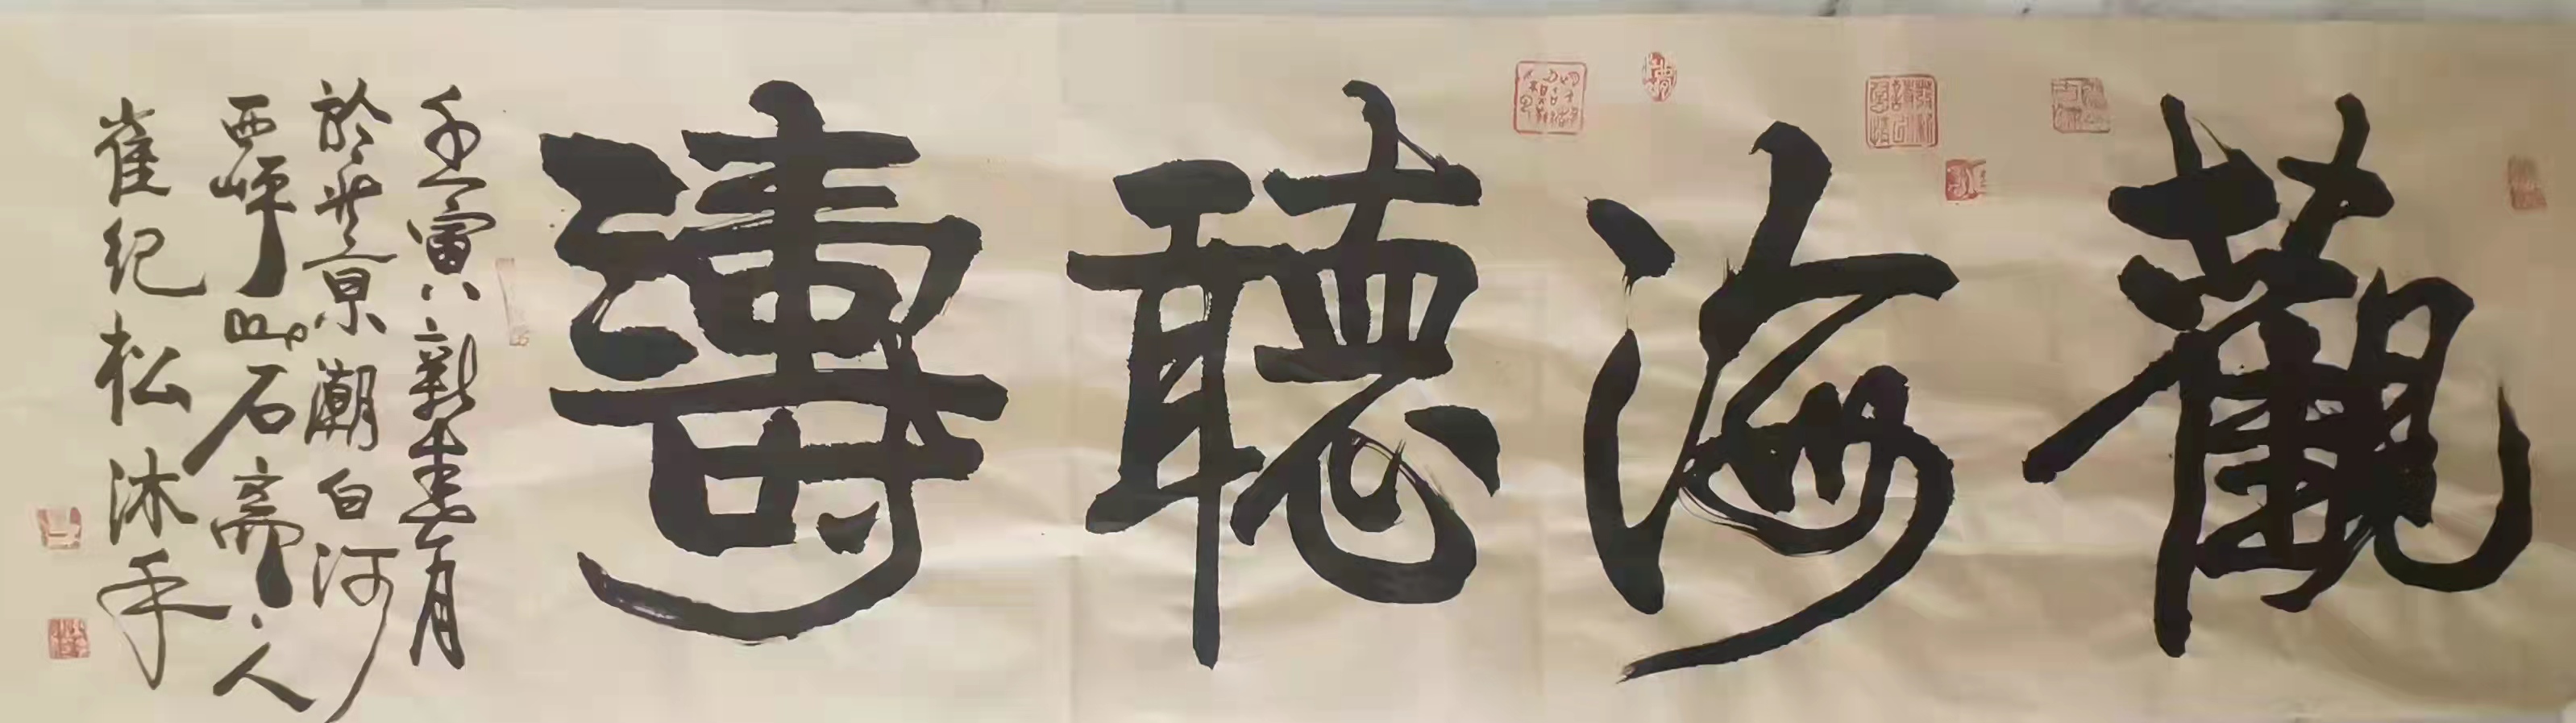 觀海聽濤
壬寅新春月
於北京潮白河
西岸石齋人
崔紀松沐手